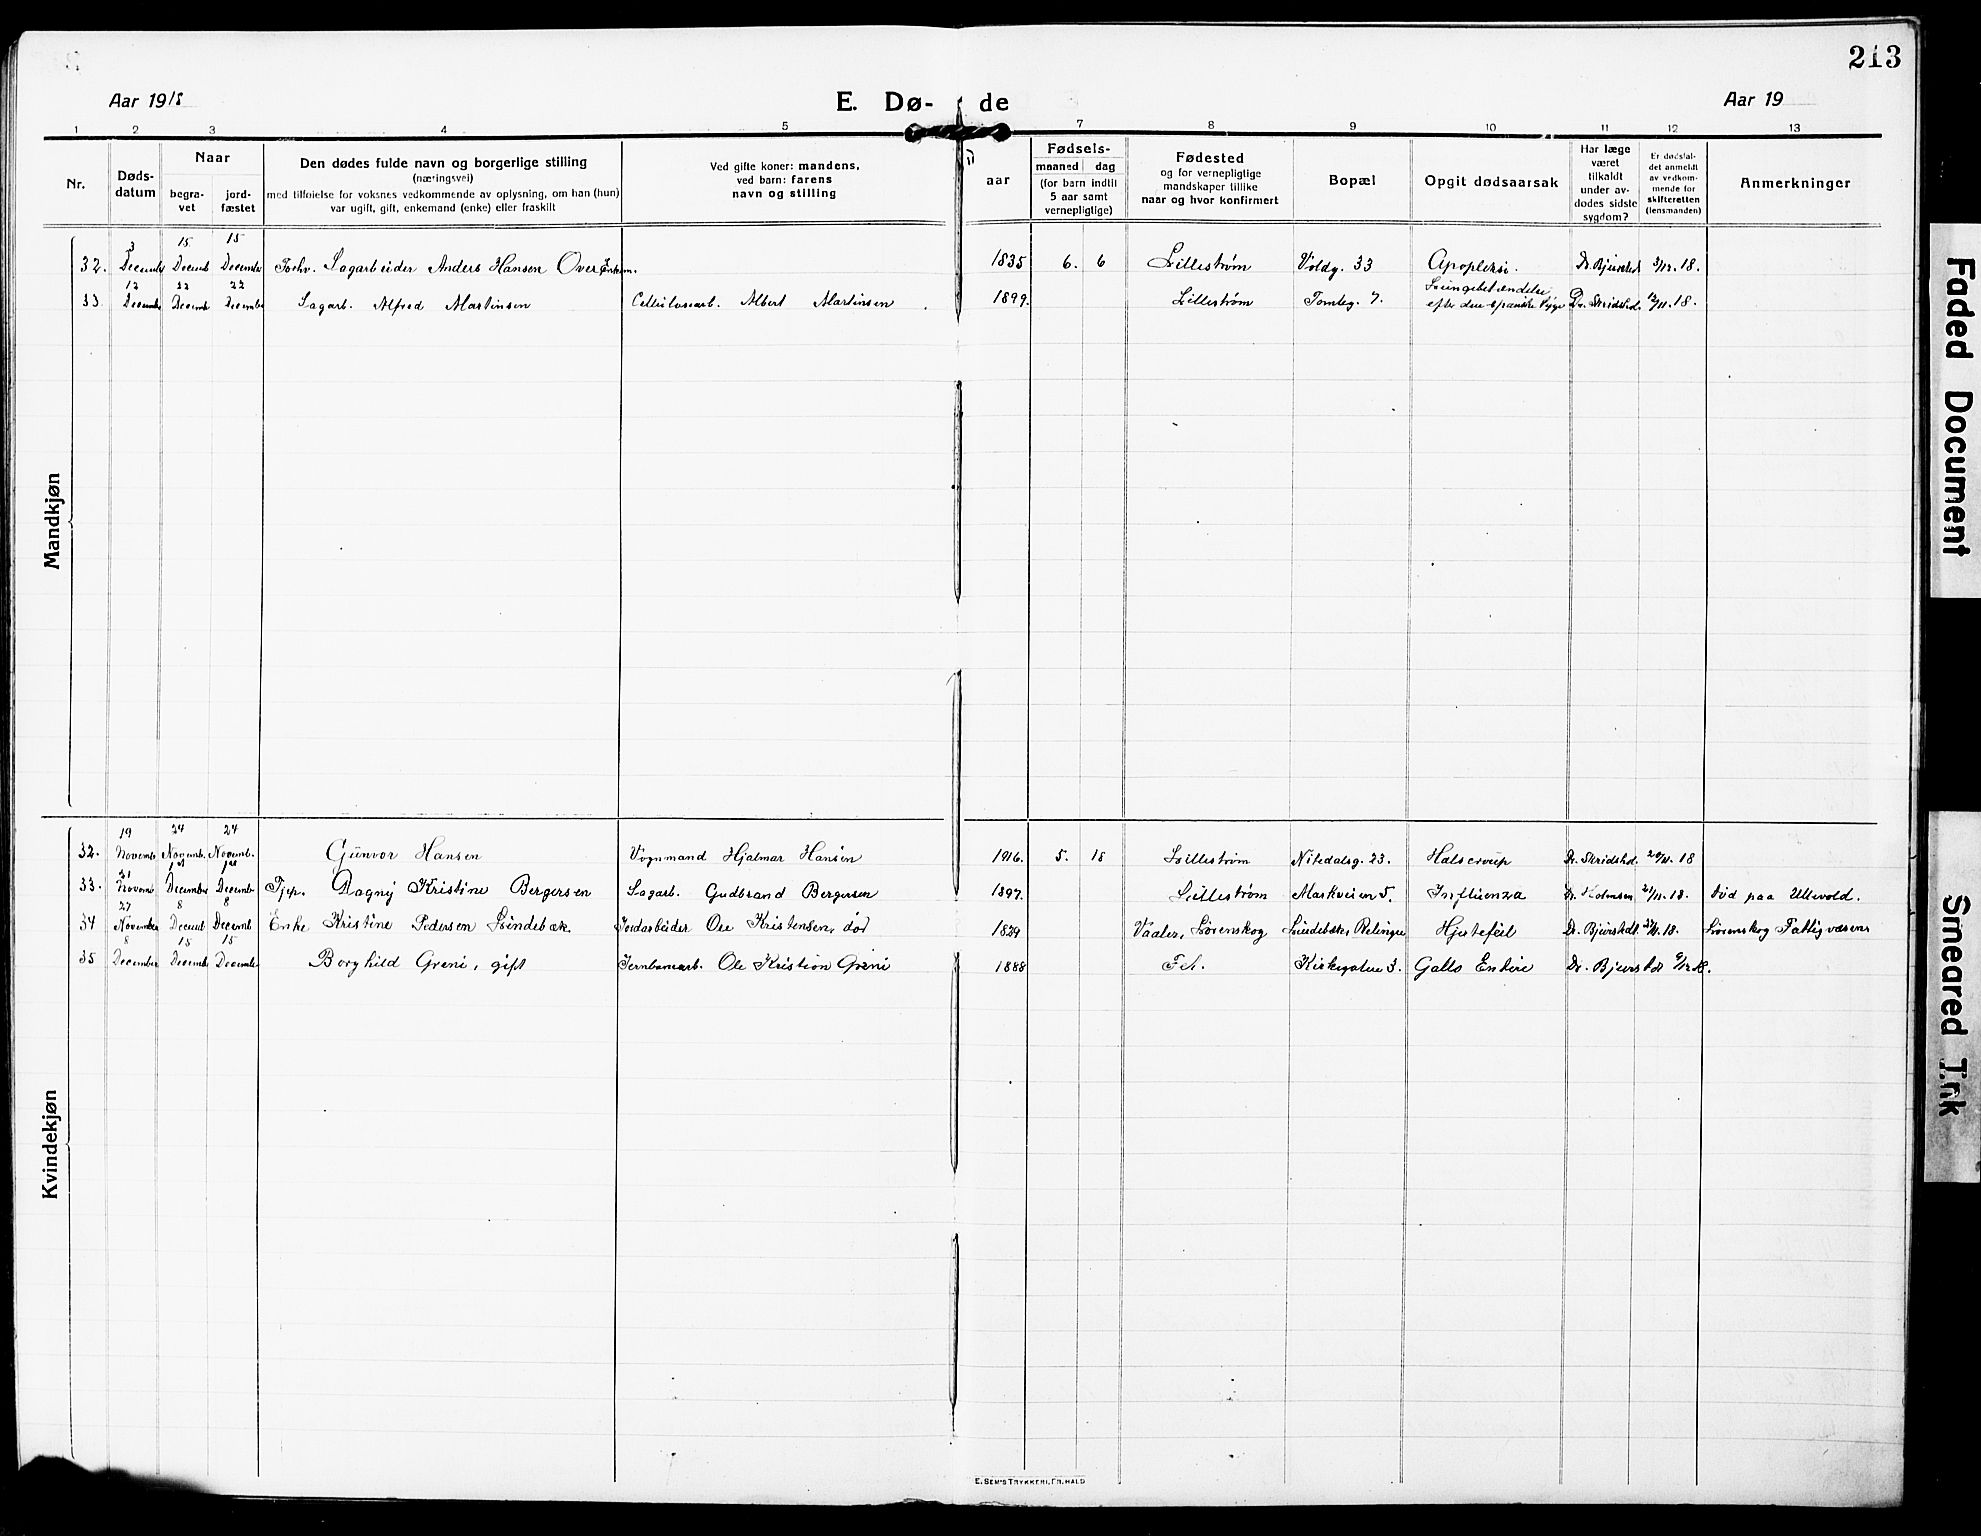 213
Aar 1918
E. Dø- de
Aar 19
1 2 3 4 5 7 8 9 10 11 12 13
Nr.
Døds-
datum
Naar
begra-
vet
jord-
fæstet
Den dødes fulde navn og borgerlige stilling
(næringsvei)
med tilføielse for voksnes vedkommende av oplysning, om han (hun)
var ugift, gift, enkemand (enke) eller fraskilt
Ved gifte koner: mandens,
ved barn: farens
navn og stilling
aar
Fødsels-
maaned dag
(for barn indtil
5 aar samt
vernepligtige)
Fødested
og for vernepligtige
mandskaper tillike
naar og hvor konfirmert
Bopæl
Opgit dødsaarsak
Har læge
været
tilkaldt
under av-
dødes sidste
sygdom?
Er dødsfal-
det anmeldt
av vedkom-
mende for
skifteretten
(lensmanden)
Anmerkninger
Mandkjøn
3 15 15
32. December Decemb December Forhv. Sagarbeider Anders Hansen Over Enkem. 1835 6. 6 Lillestrøm Voldg. 33 Apopleksi. Dr. Bjerstedt 3/12.18.
12 22 22
33 December Decemb December Sagarb. Alfred Martinsen Cellulosearb. Albert Martinsen 1899. Lillestrøm Tomteg. 7. Lungebetændelse
efter den spanske syge Dr. Skridshol 18.
Kvindekjøn
19 24 24
32. Novemb. Novemb. Novemb. Gunvor Hansen Vognmand Hjalmar Hansen 1916. 5. 18 Lillestrøm Nitedalsg. 23. Halscroup Dr. Skridshol. 20/11.18
21 1st 1st
33. Novem December December Fjep. Dagny Kristine Bergersen Sagarb. Gudbrand Bergersen 1897. Lillestrøm Markveien 5. Influenza Dr. Holmsen 21/11.18. Død paa Ullevold.
27 8 8
34 November Decemb Decemb Enke Kristine Pedersen Lindebæk. Jordarbeider Ole Kristensen, død 1829 Vaaler, Lørenskog Lindebæk, Rælingen Hjertefeil Dr. Bjerstedt 18. Lørenskog Fattigvæsen
8 15 15
35 December Decemb December Borghild Greni, gift Jernbanearb. Ole Kristian Greni 1888 Fet. Kirkegaten 3. Gallo Enterie Dr. Bjerstedt 9/12.18.
E. SEM'S TRYKKERI, FR.HALD
Faded Document
Smeared Ink